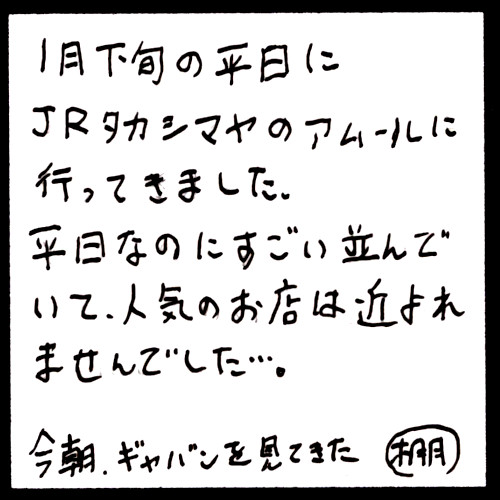 1月下旬の平日に
JRタカシマヤのアムールに
行ってきました。
平日なのにすごい並んで
いて、人気のお店は近よれ
ませんでした…。
今朝、ギャバンを見てきた 棚